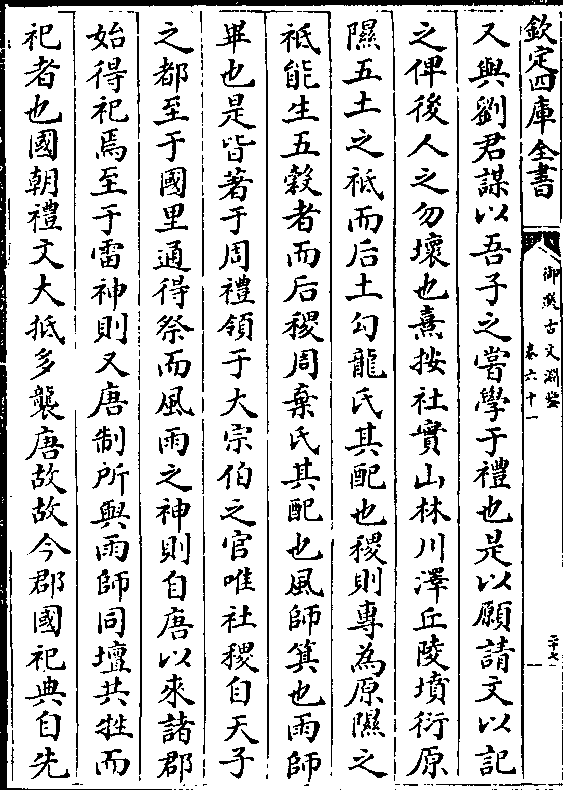 欽定四庫全書
御選古文淵鑒
卷六十一
二十七
又與劉君謀以吾子之嘗學于禮也是以願請文以記
之俾後人之勿壞也熹按社實山林川澤丘陵墳衍原
隰五土之祗而后土勾龍氏其配也稷則專為原隰之
祗能生五穀者而后稷周棄氏其配也風師箕也雨師
畢也是皆著于周禮領于大宗伯之官唯社稷自天子
之都至于國里通得祭而風雨之神則自唐以來諸郡
始得祀焉至于雷神則又唐制所與雨師同壇共牲而
祀者也國朝禮文大抵多襲唐故故今郡國祀典自先